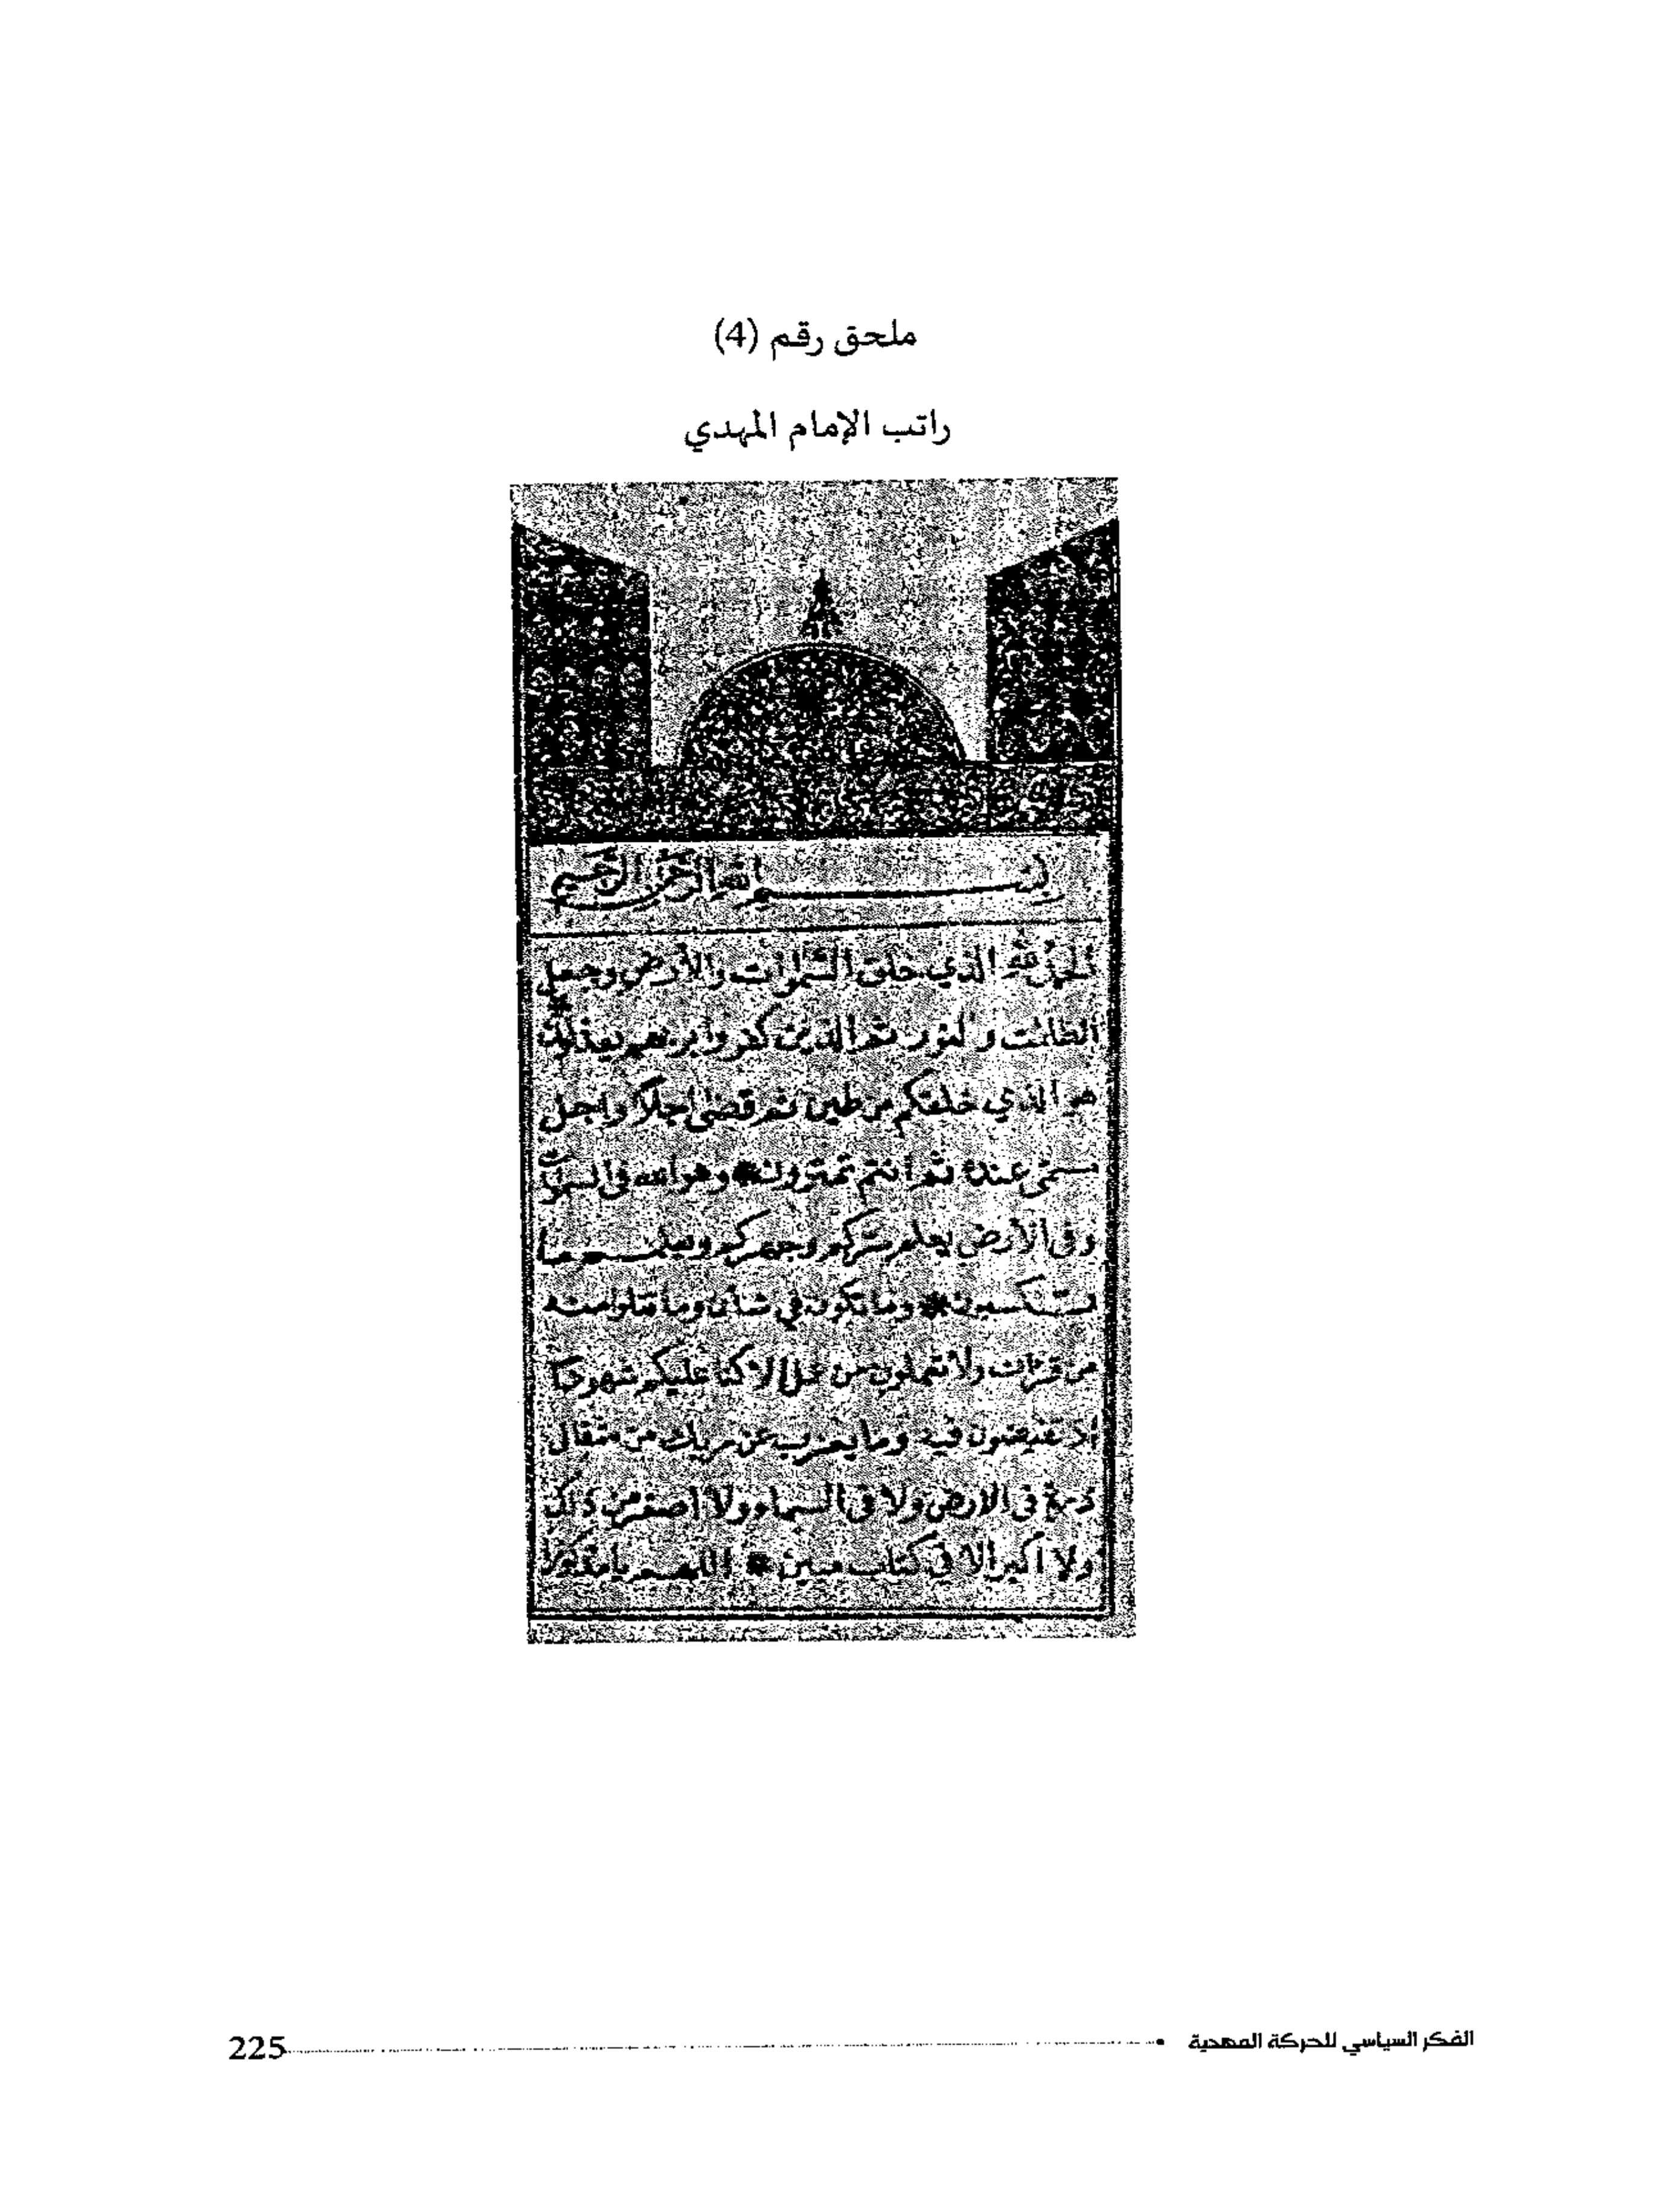 ملحق رقم (4)
راتب الإمام المهدي
بسم الله الرحمن الرحيم
الحمد لله الذي خلق السموات والأرض وجعل
الظلمت والنور ثم الذين كفروا بربهم يعدلون
هو الذي خلقكم من طين ثم قضى اجلا واجل
مسمى عنده ثم انتم تمترون وهو الله في السموات
وفي الأرض يعلم سركم وجهركم ويعلم ما
تكسبون وما تكون في شأن وما تتلوا منه
من قرءان ولا تعملون من عمل الا كنا عليكم شهودا
اذ تفيضون فيه وما يعزب عن ربك من مثقال
ذرة في الارض ولا في السماء ولا اصغر من ذلك
ولا اكبر الا في كتاب مبين اللهم يا
الفكر السياسي للحركة المهدية 225